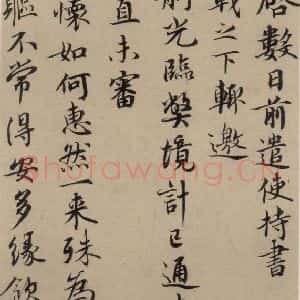 啓數日前遣使持書
戟之下輒邀
光臨弊境計已通
直未審
懷如何惠然一来殊為
軀不常得安多緣飲
Shufawang.CN